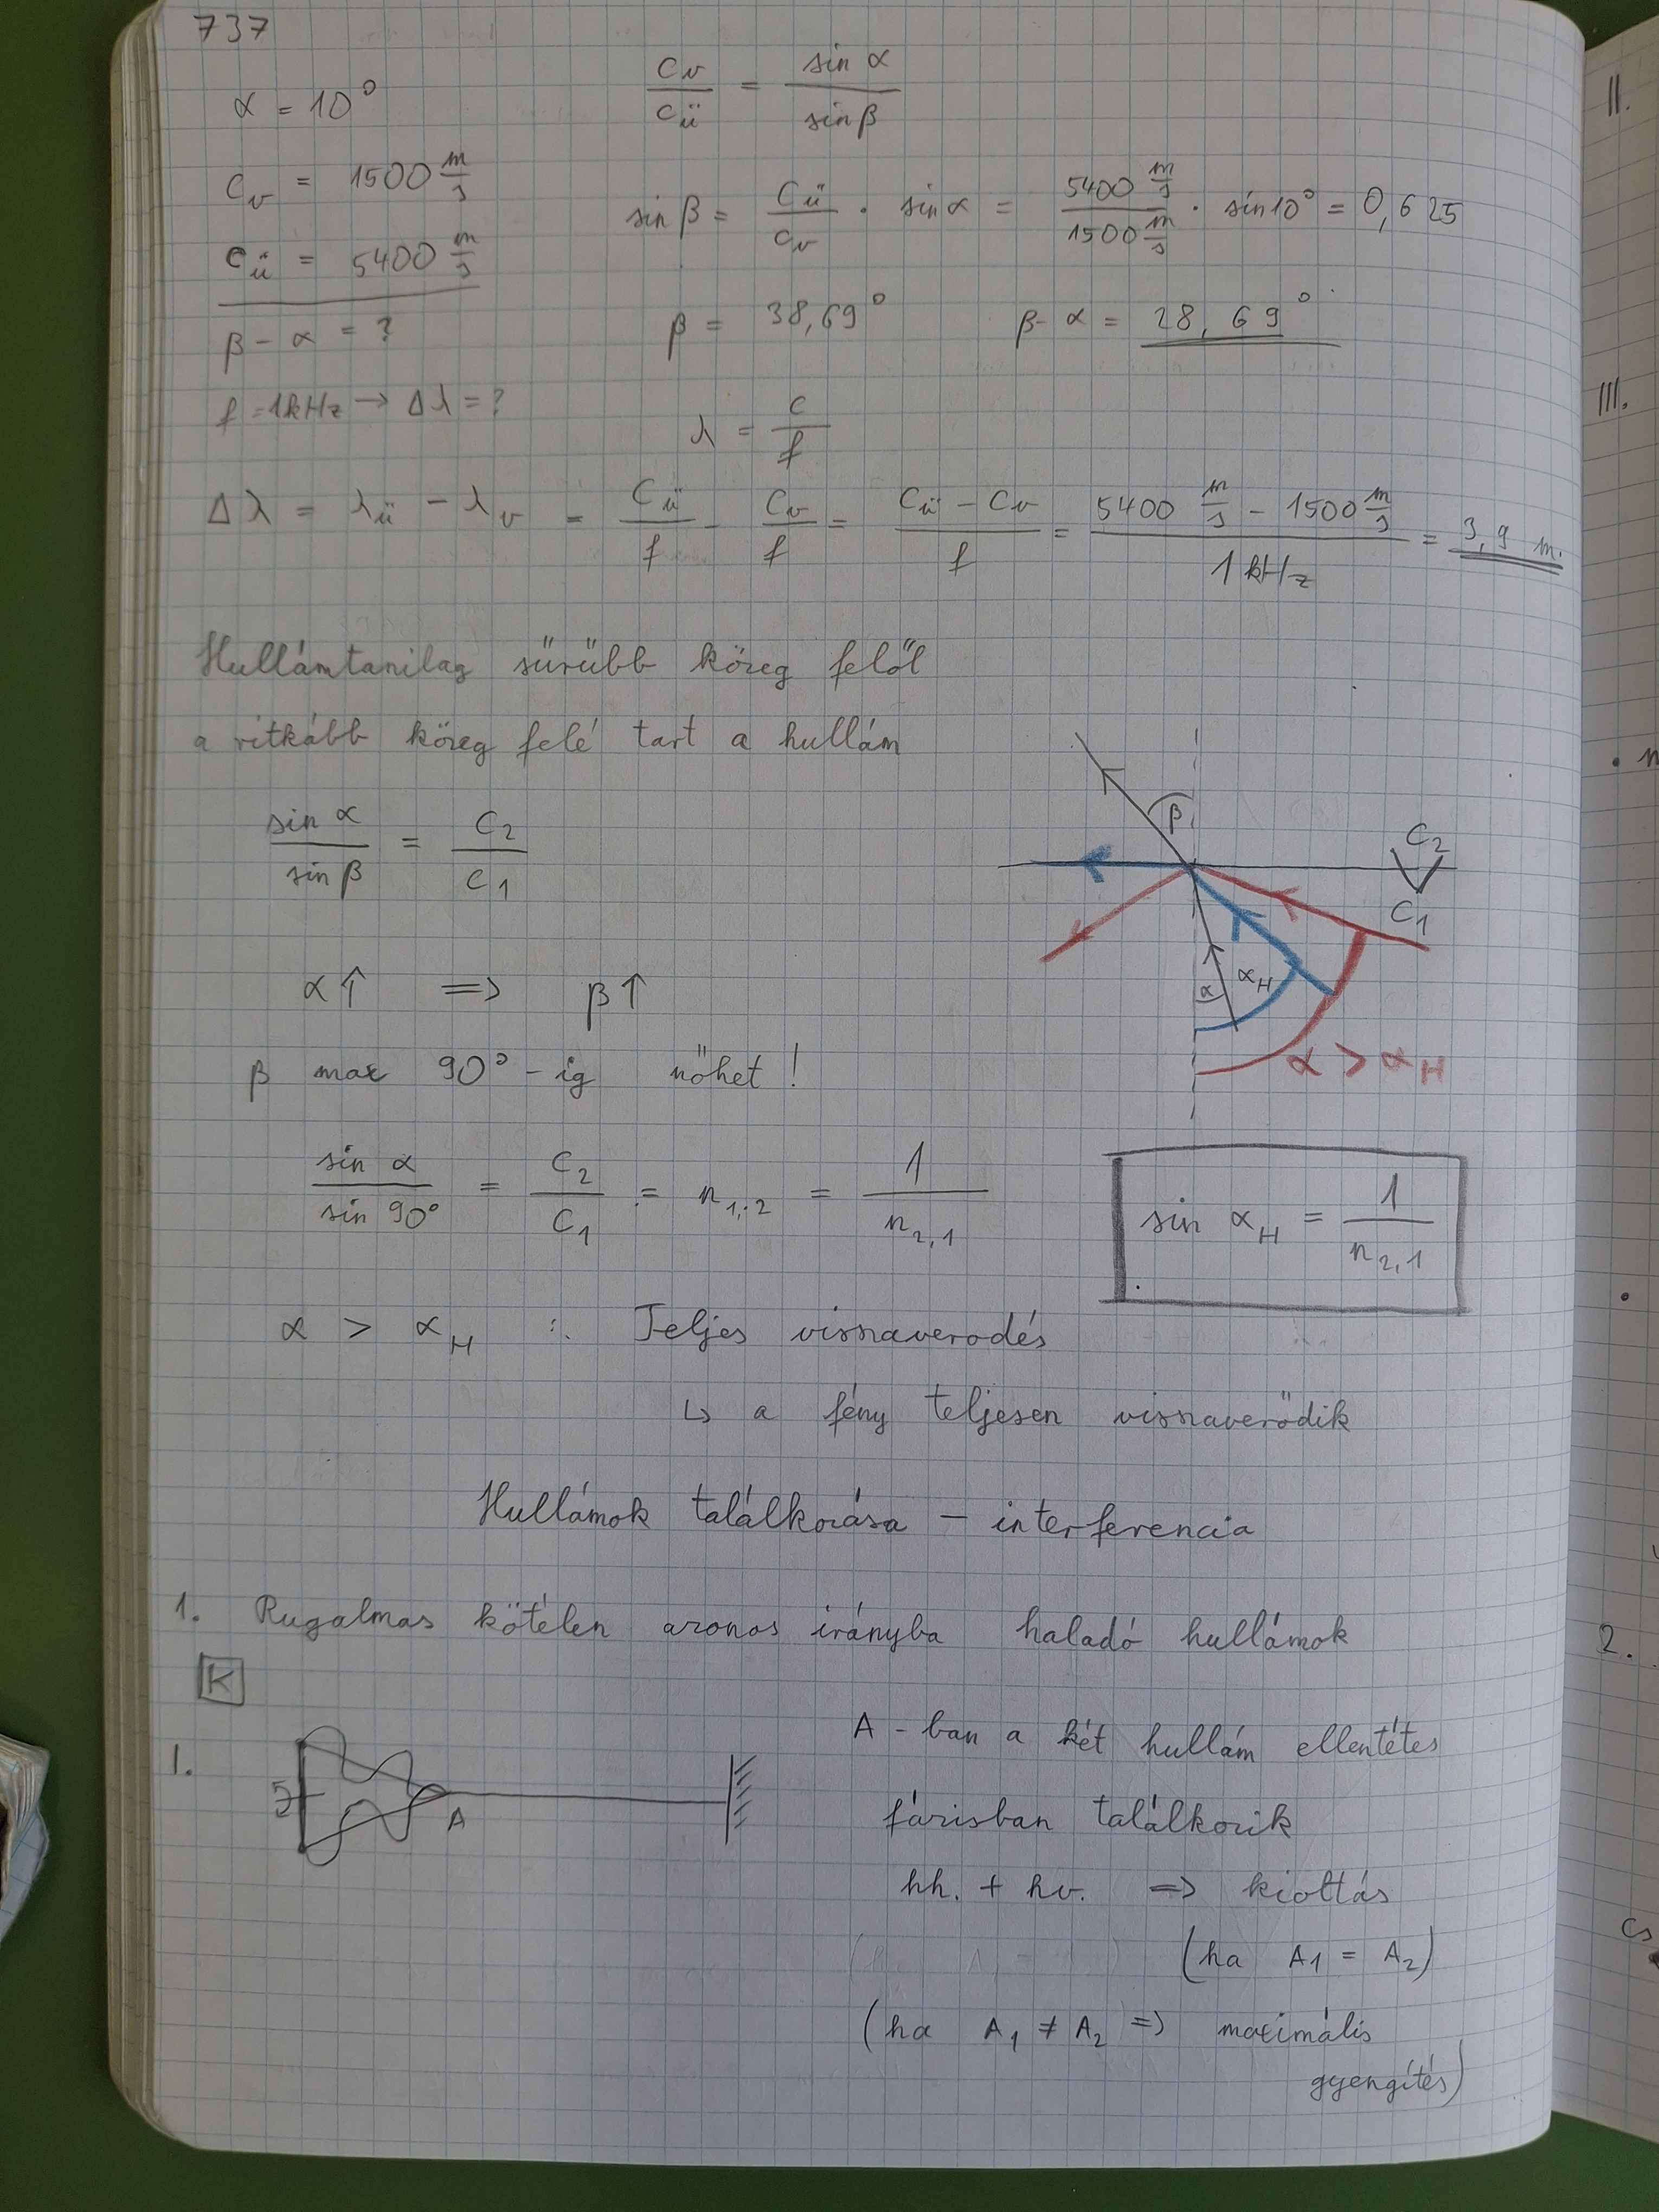 737
α = 10°
c_v / c_ü = sin α / sin β
c_v = 1500 m/s
c_ü = 5400 m/s
sin β = c_ü / c_v · sin α = 5400 m/s / 1500 m/s · sin 10° = 0,625
β - α = ?
β = 38,69°
β - α = 28,69°
f = 1kHz → Δλ = ?
λ = c / f
Δλ = λ_ü - λ_v = c_ü / f - c_v / f = (c_ü - c_v) / f = (5400 m/s - 1500 m/s) / 1 kHz = 3,9 m.
Hullámtanilag sűrűbb közeg felől
a ritkább közeg felé tart a hullám
sin α / sin β = c_2 / c_1
β
c_2
c_1
α
α_H
α > α_H
α↑ => β↑
β max 90°-ig nőhet!
sin α / sin 90° = c_2 / c_1 = n_1,2 = 1 / n_2,1
sin α_H = 1 / n_2,1
α > α_H : Teljes visszaverodés
↳ a fény teljesen visszaverődik
Hullámok találkozása - interferencia
1. Rugalmas kötélen azonos irányba haladó hullámok
K
1.
A
A-ban a két hullám ellentétes
fázisban találkozik
hh. + hv. => kioltás
(ha A_1 = A_2)
(ha A_1 ≠ A_2 => maximális
gyengítés)
II.
III.
2.